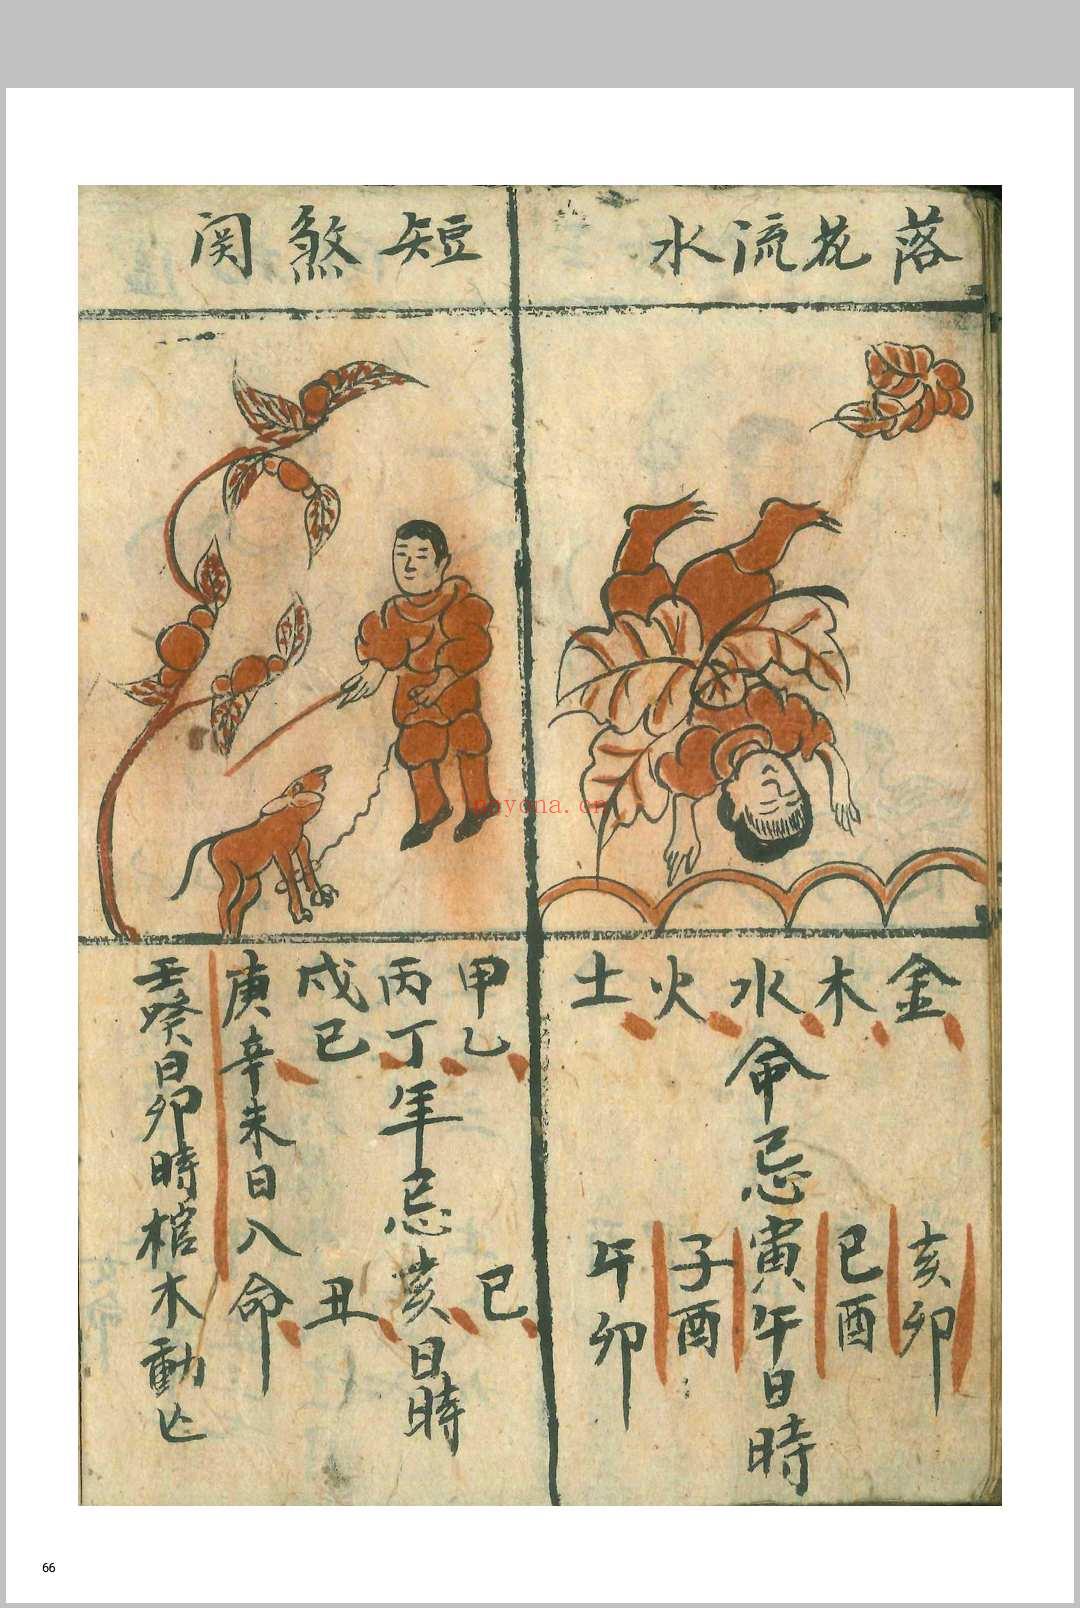 落花流水
金木水火土
命忌
亥卯
巳酉
寅午日時
子酉
午卯
短煞関
甲乙
丙丁年忌亥日時
戊己
巳
丑
庚辛未日八命
壬癸日卯時棺木動亡
nayona.cn
66